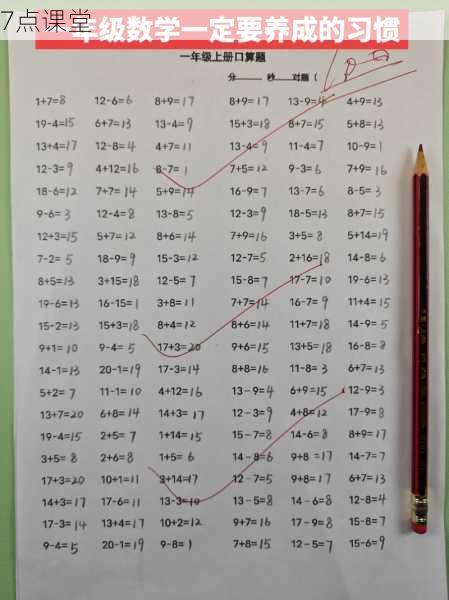 7点课堂
年级数学一定要养成的习惯
一年级上册口算题
分 秒 对题（
1+7=8 12-6=6 8+9=17 8+9=17 13-9=4 4+9=13
19-4=15 6+7=13 13-4=9 15+3=18 8+7=15 5+8=13
13+4=17 12-8=4 4+7=11 13-4=9 11-4=7 10-9=1
12-3=9 4+12=16 8-7=1 7+5=12 9-3=6 7+9=16
18-6=12 7+7=14 5+9=14 16-9=7 13-7=6 8-5=3
9-6=3 12-4=8 13-8=5 12-3=9 18-5=13 8+7=15
12+3=15 5+7=12 8+6=14 7+9=16 3+5=8 5+14=19
7-2=5 18-9=9 15-3=12 12-7=5 2+16=18 14-8=6
8+5=13 3+15=18 12-5=7 15-8=7 17-7=10 19-6=13
19-6=13 16-15=1 3+8=11 7+7=14 16-7=9 11+4=15
15-2=13 15+3=18 8+4=12 8+6=14 11+7=18 14-9=5
9+1=10 9-4=5 17+3=20 9+6=15 13+5=18 16-8=8
14-1=13 20-1=19 17-3=14 8+8=16 11-8=3 6+7=13
5+2=7 11-1=10 4+12=16 13-9=4 6+9=15 12-9=3
13+7=20 6+8=14 14+3=17 12-3=9 4+8=12 17-9=8
19-4=15 2+5=7 1+14=15 15-7=8 14-6=8 8+9=17
3+5=8 2+6=8 1+5=6 14-8=6 9+8=17 14-7=7
17+3=20 10+1=11 3+14=17 12-7=5 9+8=17 6+7=13
14+3=17 17-6=11 13-3=10 13-5=8 14-6=8 12-8=4
17-3=14 13+4=17 10+2=12 9+7=16 17-9=8 15-8=7
9-4=5 20-1=19 9-8=1 7+8=15 12-5=7 15-6=9